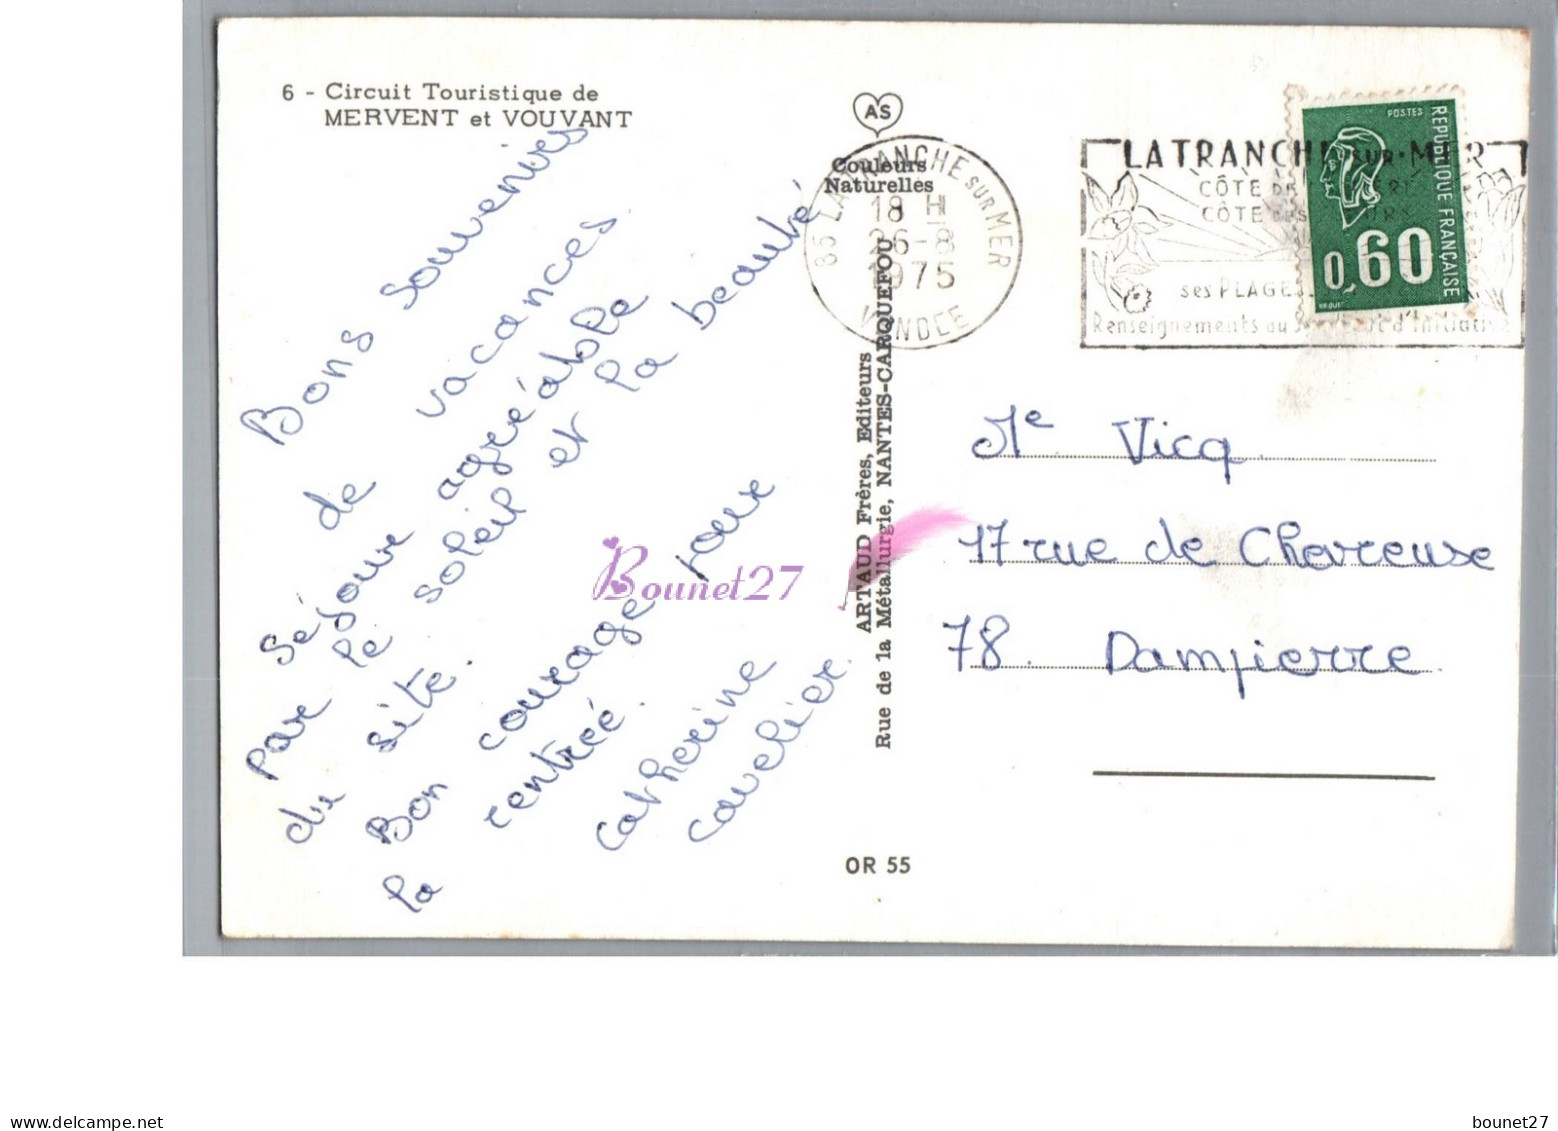 6 - Circuit Touristique de
MERVENT et VOUVANT
Bons souvenirs
de vacances
séjour agréable
par le soleil et la beauté
du site.
Bon courage pour
la rentrée.
Catherine
Cavelier.
AS
Couleurs
Naturelles
85 LA TRANCHE SUR MER
18 H
26-8
1975
VENDEE
ARTAUD Frères, Editeurs
Rue de la Métallurgie, NANTES-CARQUEFOU
OR 55
LA TRANCHE SUR-MER
CÔTE DE
CÔTE DES
ses PLAGES
Renseignements au d'Initiative
POSTES
REPUBLIQUE FRANÇAISE
0,60
BEQUET
Me Vicq
17 rue de Chevreuse
78 Dampierre
Bounet27
delcampe.net
bounet27